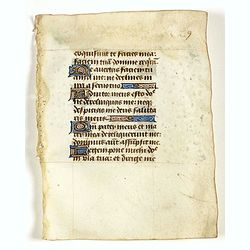 exquisivit te facies mea:
faciem tuam domine requi
Ne avertas faciem tuam
a me: ne declines in
ira a servo tuo
Adiutor meus esto: do
ne derelinquas me: neq
despicias me deus saluta
ris meus
Quoniam pater meus et ma
mea dereliquerunt me:
dominus aut assumpsit me
Legem pone michi do
in via tua: et dirige me